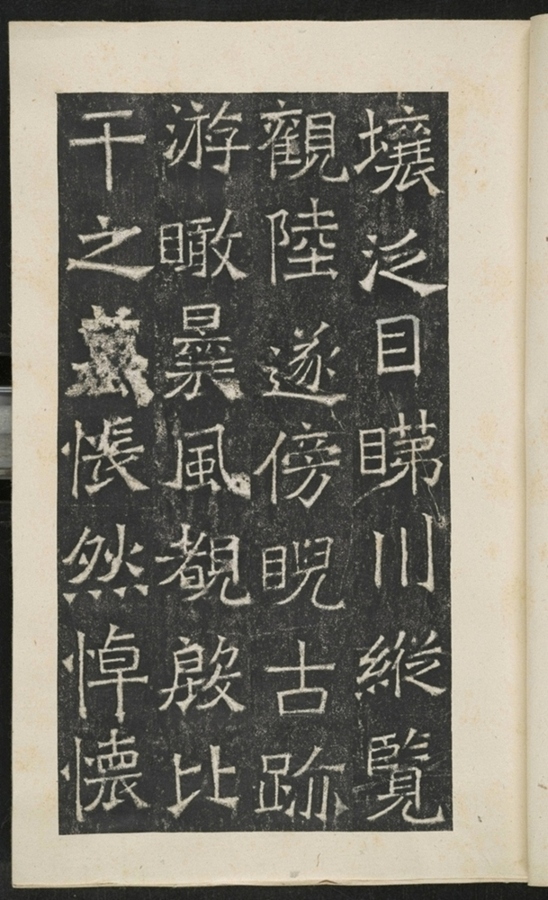 壤泛目睇川縱覽
觀陸遂傍睨古跡
游瞰曩風覩殷比
干之墓悵然悼懷